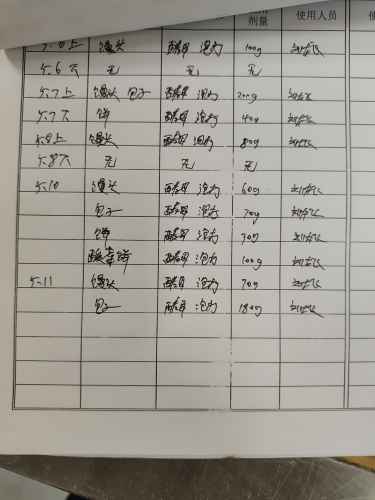 剂量 使用人员
5.6上 馒头 酵母 泡打 100g
5.6下 无 无 无
5.7上 馒头 包子 酵母 泡打 200g
5.7下 饼 酵母 泡打 40g
5.8上 馒头 酵母 泡打 80g
5.8下 无 无 无
5.10 馒头 酵母 泡打 60g
包子 酵母 泡打 70g
饼 酵母 泡打 70g
酸菜饼 酵母 泡打 100g
5.11 馒头 酵母 泡打 70g
包子 酵母 泡打 180g